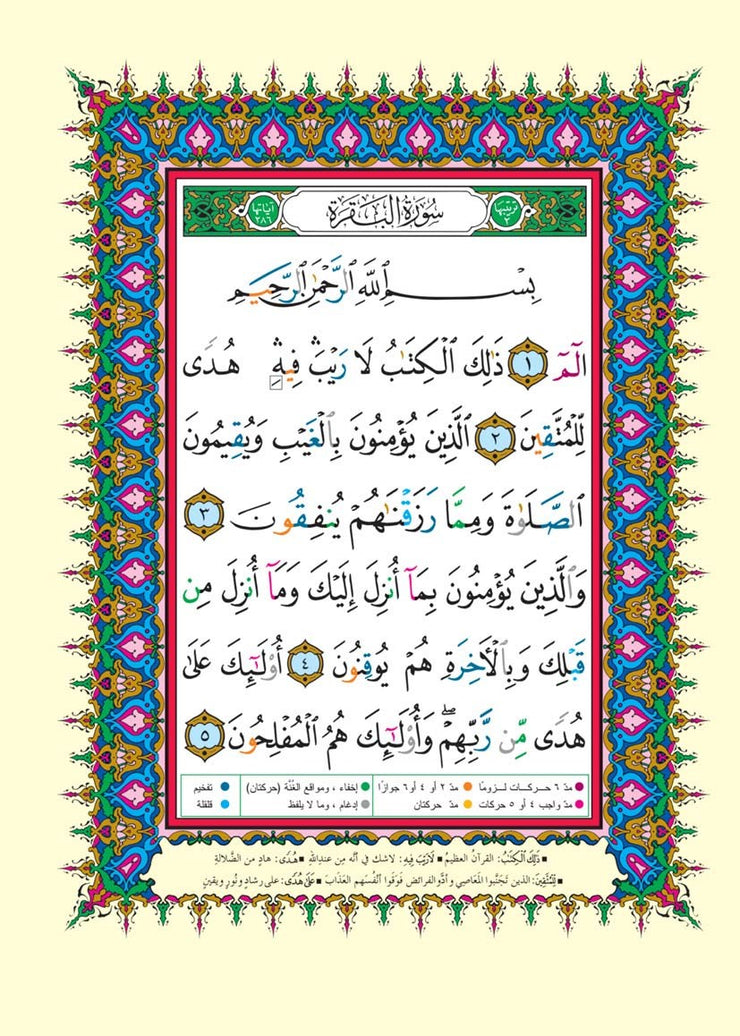 ترتيبها ٢ سُورَةُ البَقَرَةِ آياتها ٢٨٦
بِسْمِ ٱللَّهِ ٱلرَّحْمَٰنِ ٱلرَّحِيمِ
الٓمٓ ١ ذَٰلِكَ ٱلْكِتَٰبُ لَا رَيْبَ ۛ فِيهِ ۛ هُدًى
لِّلْمُتَّقِينَ ٢ ٱلَّذِينَ يُؤْمِنُونَ بِٱلْغَيْبِ وَيُقِيمُونَ
ٱلصَّلَوٰةَ وَمِمَّا رَزَقْنَٰهُمْ يُنفِقُونَ ٣
وَٱلَّذِينَ يُؤْمِنُونَ بِمَآ أُنزِلَ إِلَيْكَ وَمَآ أُنزِلَ مِن
قَبْلِكَ وَبِٱلْأَخِرَةِ هُمْ يُوقِنُونَ ٤ أُو۟لَٰٓئِكَ عَلَىٰ
هُدًى مِّن رَّبِّهِمْ ۖ وَأُو۟لَٰٓئِكَ هُمُ ٱلْمُفْلِحُونَ ٥
مدّ ٦ حـركـات لـزومـًا مدّ ٢ أو ٤ أو ٦ جوازًا إخفاء ، ومواقع الغُنّة (حركتان) تفخيم
مدّ واجب ٤ أو ٥ حركات مدّ حركتان إدغام ، وما لا يلفظ قلقلة
ذَٰلِكَ ٱلْكِتَٰبُ: القرآنُ العظيمُ لَا رَيْبَ فِيهِ: لاشك في أنّه مِن عندِاللهِ هُدًى: هادٍ من الضّلالةِ
لِلْمُتَّقِينَ: الذين تَجَنَّبوا المَعَاصي و أدَّوالفرائض فَوَقَوا أنْفُسَهم العَذَابَ عَلَىٰ هُدًى: على رشادٍ ونُورٍ ويقينٍ